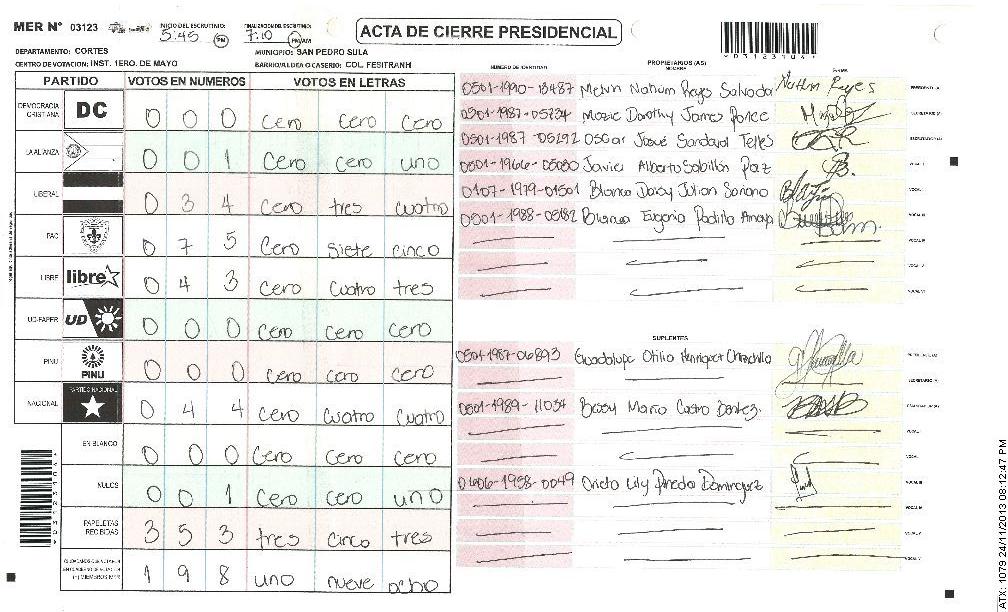 MER Nº 03123
INICIO DEL ESCRUTINIO: 5:45 PM
FINALIZACION DEL ESCRUTINIO: 7:10 PM/AM
ACTA DE CIERRE PRESIDENCIAL
*03123104*
DEPARTAMENTO: CORTES
MUNICIPIO: SAN PEDRO SULA
CENTRO DE VOTACION: INST. 1ERO. DE MAYO
BARRIO/ALDEA O CASERIO: COL. FESITRANH
PARTIDO VOTOS EN NUMEROS VOTOS EN LETRAS
DEMOCRACIA CRISTIANA DC 0 0 0 Cero Cero Cero
LA ALIANZA 0 0 1 Cero cero uno
LIBERAL 0 3 4 Cero tres cuatro
PAC 0 7 5 Cero siete cinco
LIBRE libre 0 4 3 Cero Cuatro tres
UD-FAPER UD 0 0 0 Cero Cero Cero
PINU PINU 0 0 0 Cero Cero Cero
NACIONAL PARTIDO NACIONAL 0 4 4 Cero Cuatro Cuatro
EN BLANCO 0 0 0 Cero Cero Cero
NULOS 0 0 1 Cero Cero uno
PAPELETAS RECIBIDAS 3 5 3 tres cinco tres
1 9 8 uno nueve ocho
NUMERO DE IDENTIDAD PROPIETARIOS (AS) NOMBRE FIRMA
0501-1990-13487 Melvin Nahum Reyes Salvada PRESIDENTE (A)
0501-1987-05734 Dorothy James Ponce SECRETARIO (A)
0501-1987-05292 Oscar Josué Sandoval Telles
Javier Alberto Sabillón Paz VOCAL I
0107-1979-01501 Blanca Daisy Julian Soriano
Blanca Eugenia Padilla Amaya
SUPLENTES
Guadalupe Otilia Henriquez
SECRETARIO (A)
Bessy Maria Castro Benitez
Lily Pineda Dominguez
ATX: 1079 24/11/2013 08:12:47 PM